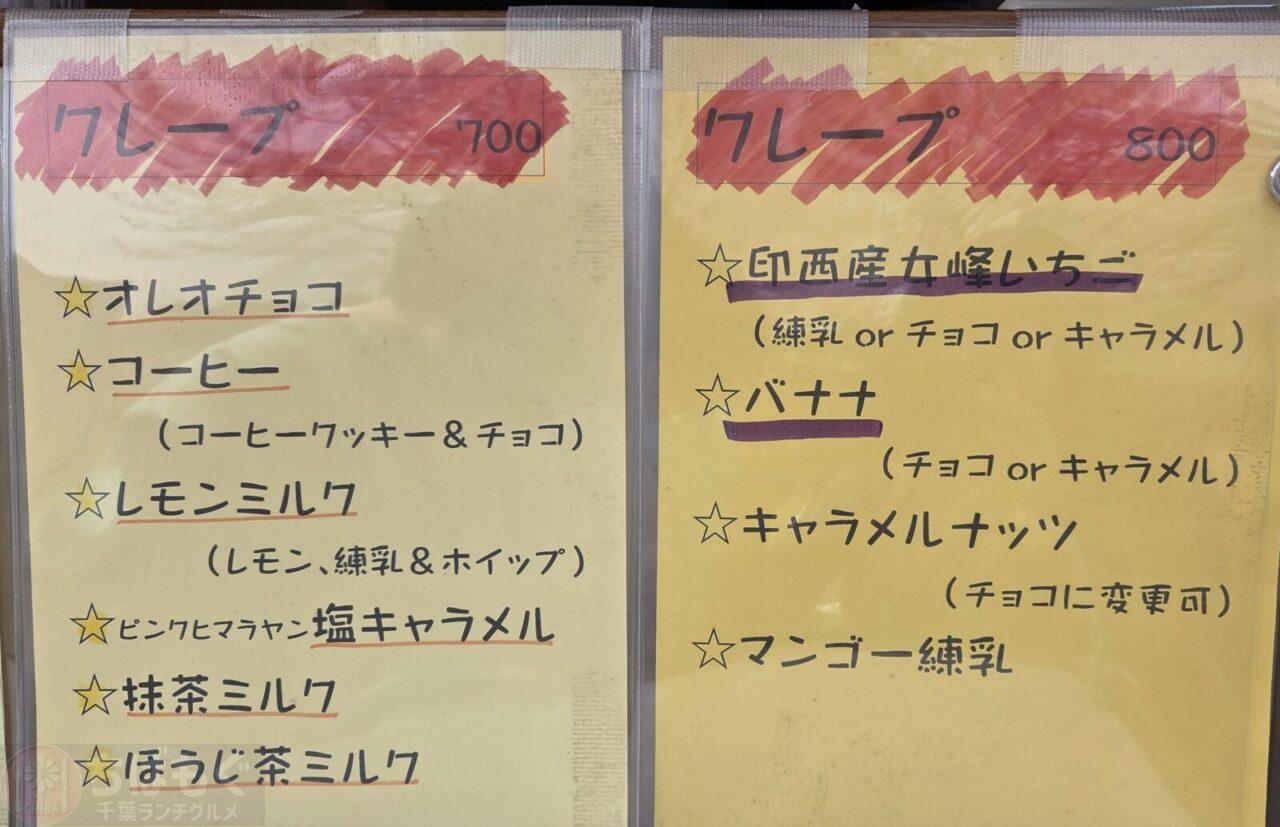 クレープ 700
☆オレオチョコ
☆コーヒー
(コーヒークッキー&チョコ)
☆レモンミルク
(レモン、練乳&ホイップ)
☆ピンクヒマラヤン塩キャラメル
☆抹茶ミルク
☆ほうじ茶ミルク
クレープ 800
☆印西産女峰いちご
(練乳 or チョコ or キャラメル)
☆バナナ
(チョコ or キャラメル)
☆キャラメルナッツ
(チョコに変更可)
☆マンゴー練乳
ちばもぐ
CHIBA
千葉ランチグルメ